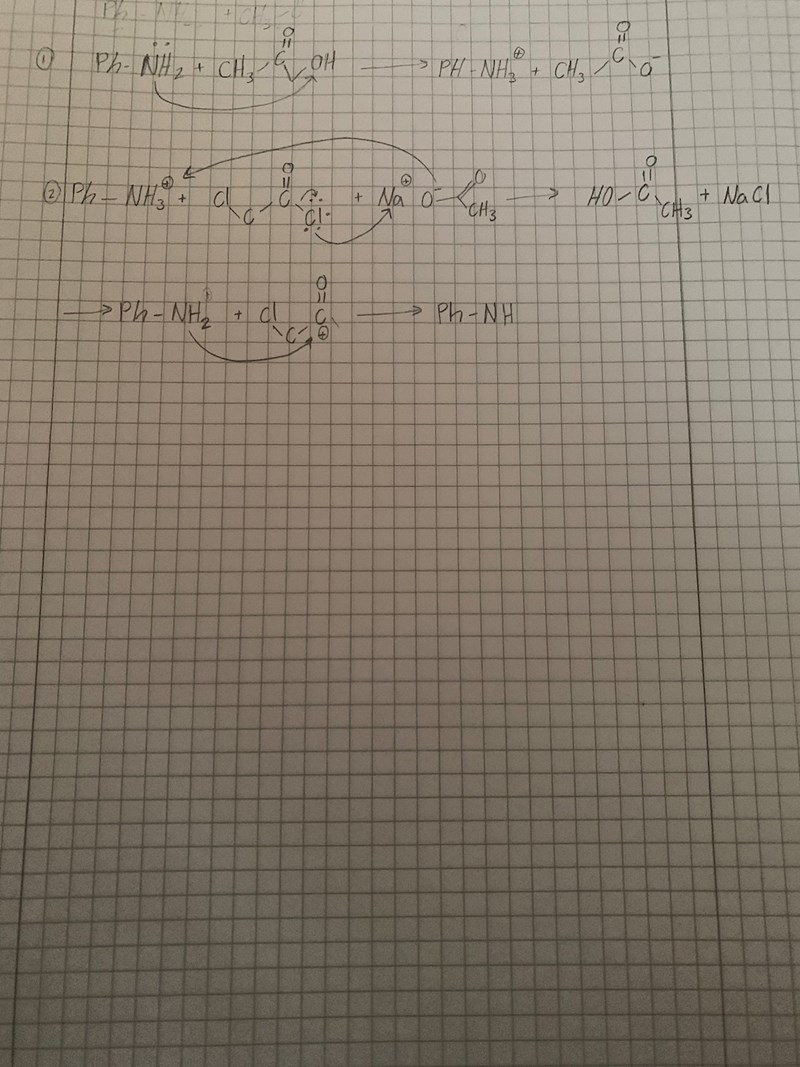 Ph-NH2 + CH3
① Ph-N̈H2 + CH3-C(=O)-OH → PH-NH3⊕ + CH3-C(=O)-O⁻
② Ph-NH3⊕ + Cl-C-C(=O)-Cl + Na⊕ O⁻-C(=O)-CH3 → HO-C(=O)-CH3 + NaCl
→ Ph-NH2 + Cl-C-C(=O)⊕ → Ph-NH